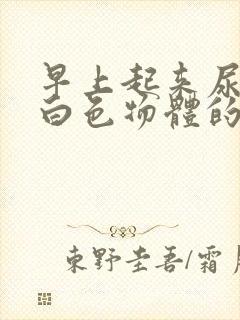 早上起来尿
白色物體的
東野圭吾/霜月